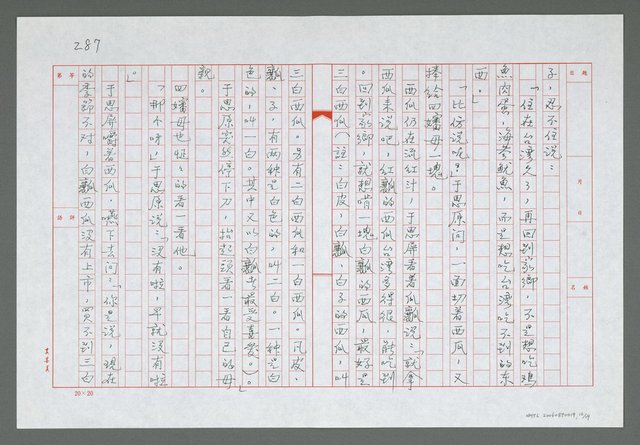 287
子,忍不住說:
「住在台灣久了,再回到家鄉,不是想吃雞
魚肉蛋,海參魷魚,而是想吃台灣吃不到的東
西。」
「比仿說呢?」于思原問,一面切着西瓜,又
捧給四嬸母一塊。
西瓜仍在流紅汁,于思屏看著瓜瓤說:「就拿
西瓜來說吧,紅瓤的西瓜台灣多得很,能吃到
。回到家鄉,就想啃一塊白瓤的西瓜,最好是
三白西瓜(註:白皮,白瓤,白子的西瓜,叫
三白西瓜。另有二白西瓜和一白西瓜。凡皮、
瓤、子,有兩種是白色的,叫二白。一種是白
色的,叫一白。其中又以白瓤者最受喜愛。)。」
于思原突然停下刀,抬起頭看一看自己的母
親。
四嬸母也怔怔的看一看他。
「那不呀!」于思原說:「沒有啦,早就沒有啦
。」
于思屏嚼着西瓜,嚥下去問:「你是說,現在
的季節不對,白瓤西瓜沒有上市,買不到三白
題目
月
日
稱名
等第
評語
20×20